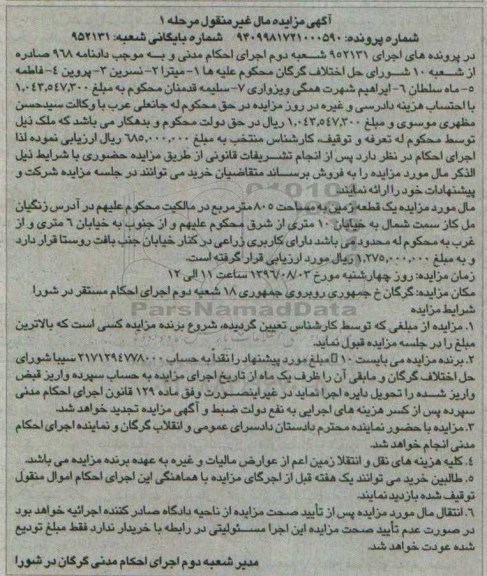 آگهی مزایده مال غیر منقول مرحله ۱
شماره پرونده: ۹۳۰۹۹۸۱۷۲۱۰۰۰۵۹۰ شماره بایگانی شعبه: ۹۵۲۱۳۱
در پرونده های اجرای ۹۵۲۱۳۱ شعبه دوم اجرای احکام مدنی و به موجب دادنامه ۹۶۸ صادره
از شعبه ۱۰ شورای حل اختلاف گرگان محکوم علیه ها ۱-میترا ۲-نسرین ۳-پروین ۴-فاطمه
۵-ماه سلطان ۶-ابراهیم شهرت همگی ویزواری ۷-سلیمه قدمنان محکوم به مبلغ ۱,۰۴۳,۵۴۷,۳۰۰
با احتساب هزینه دادرسی و غیره در روز مزایده در حق محکوم له جانعلی عرب با وکالت سیدحسن
مظهری موسوی و مبلغ ۱,۰۴۳,۵۴۷,۳۰۰ ریال در حق دولت محکوم و بدهکار می باشد که ملک ذیل
توسط محکوم له تعرفه و توقیف، کارشناس منتخب به مبلغ ۶۸۵,۰۰۰,۰۰۰ ریال ارزیابی نموده لذا
اجرای احکام در نظر دارد پس از انجام تشریفات قانونی از طریق مزایده حضوری با شرایط ذیل
الذکر مال مورد مزایده را به فروش برساند متقاضیان خرید می توانند در جلسه مزایده شرکت و
پیشنهادات خود را ارائه نمایند.
مال مورد مزایده یک قطعه زمین به مساحت ۸۰۵ مترمربع در مالکیت محکوم علیهم در آدرس زنگیان
مل کاز سمت شمال به خیابان ۱۰ متری از شرق محکوم علیهم و از جنوب به خیابان ۶ متری و از
غرب به محکوم له محدود می باشد دارای کاربری زراعی در کنار خیابان جنب بافت روستا قرار دارد
و به مبلغ ۱,۲۷۵,۰۰۰,۰۰۰ ریال مورد ارزیابی قرار گرفته است.
زمان مزایده: روز چهارشنبه مورخ ۱۳۹۶/۰۸/۰۳ ساعت ۱۱ الی ۱۲
مکان مزایده: گرگان خ جمهوری روبروی جمهوری ۱۸ شعبه دوم اجرای احکام مستقر در شورا
شرایط مزایده
۱. مزایده از مبلغی که توسط کارشناس تعیین گردیده، شروع برنده مزایده کسی است که بالاترین
مبلغ را در جلسه مزایده قبول نماید.
۲. برنده مزایده می بایست ۱۰ مبلغ مورد پیشنهاد را نقدا به حساب ۲۱۷۱۲۹۴۷۷۸۰۰۰ سیبا شورای
حل اختلاف گرگان و مابقی آن را ظرف یک ماه از تاریخ اجرای مزایده به حساب سپرده واریز قبض
واریز شده را تحویل دایره اجرا نماید در غیر اینصورت وفق ماده ۱۲۹ قانون اجرای احکام مدنی
سپرده پس از کسر هزینه های اجرایی به نفع دولت ضبط و آگهی مزایده تجدید خواهد شد.
۳. مزایده با حضور نماینده محترم دادستان دادسرای عمومی و انقلاب گرگان و نماینده اجرای احکام
مدنی انجام خواهد شد.
۴. کلیه هزینه های نقل و انتقلا زمین اعم از عوارض مالیات و غیره به عهده برنده مزایده می باشد.
۵. طالبین خرید می توانند یک هفته قبل از اجرگای مزایده با هماهنگی این اجرای احکام اموال منقول
توقیف شده بازدید نمایند.
۶. انتقال مال مورد مزایده پس از تأیید صحت مزایده از ناحیه دادگاه صادر کننده اجرائیه خواهد بود
در صورت عدم تأیید صحت مزایده این اجرا مسئولیتی در رابطه با خریدار ندارد فقط مبلغ تودیع
شده عودت خواهد شد.
مدیر شعبه دوم اجرای احکام مدنی گرگان در شورا
ParsNamadData